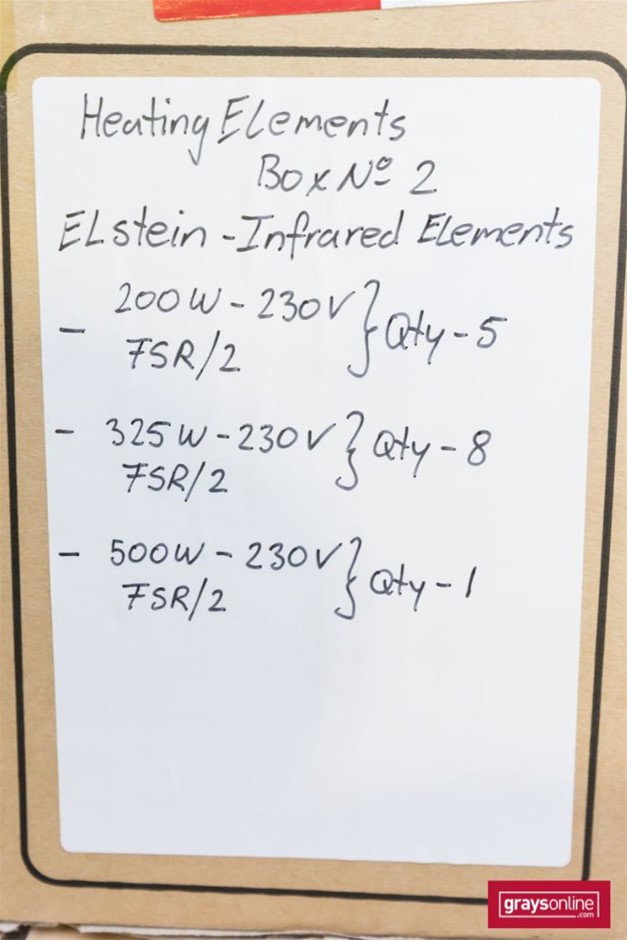 Heating Elements
Box Nº 2
ELstein - Infrared Elements
- 200W - 230V } Qty - 5
FSR/2
- 325W - 230V } Qty - 8
FSR/2
- 500W - 230V } Qty - 1
FSR/2
graysonline
.com